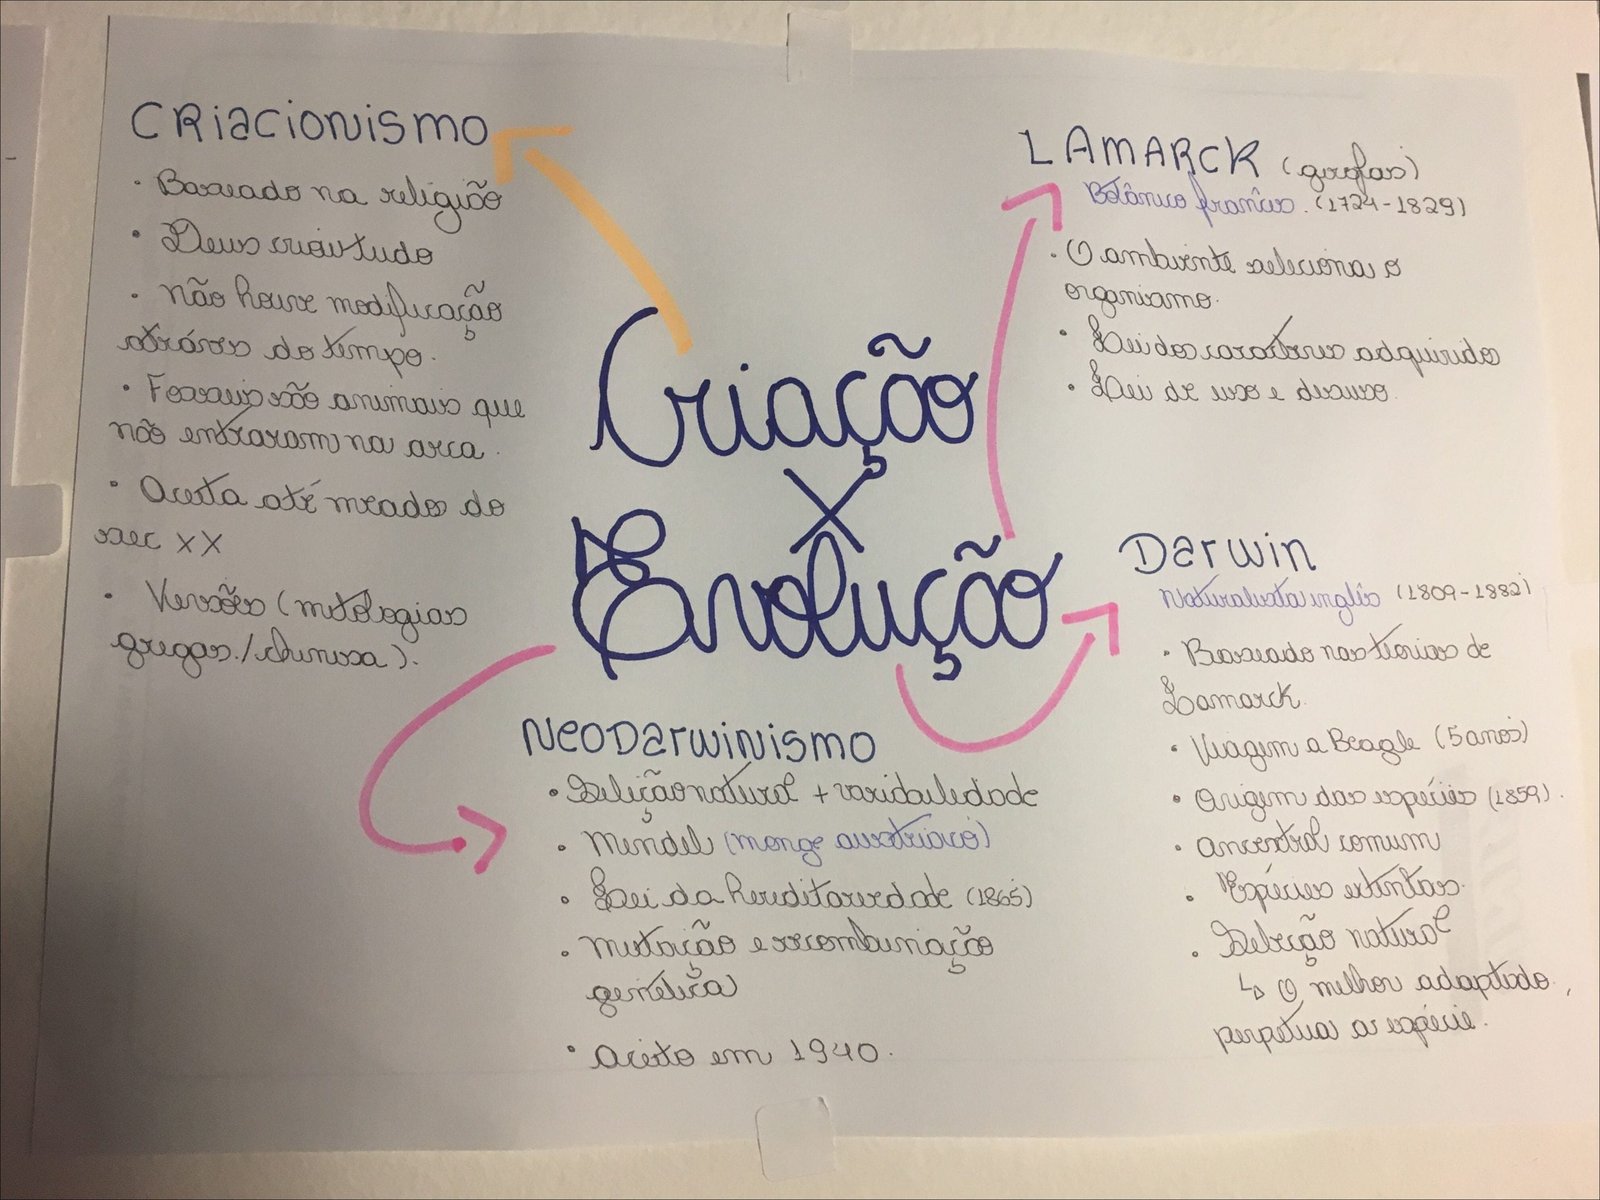 CRiacionismo
• Baseado na religião
• Deus criou tudo
• não houve modificação
através do tempo.
• Fosseis são animais que
não entraram na arca.
• Aceita até meados do
sec XX
• Versões (mitologias
gregas/chinesa).
Criação
X
Evolução
LAMARCK (girafas)
Botânico francês. (1724-1829)
• O ambiente seleciona o
organismo.
• Lei dos caracteres adquirido
• Lei de uso e desuso.
Darwin
Naturalista inglês (1809-1882)
• Baseado nas teorias de
Lamarck.
• Viagem a Beagle (5 anos)
• Origem das espécies (1859).
• ancestral comum
• Espécies extintas.
• Seleção natural
↳ O melhor adaptado,
perpetua a espécie.
NeoDarwinismo
• Seleção natural +
• Mendel (monge austríaco)
• Lei da hereditariedade (1865)
• mutação e recombinação
genética
• aceito em 1940.